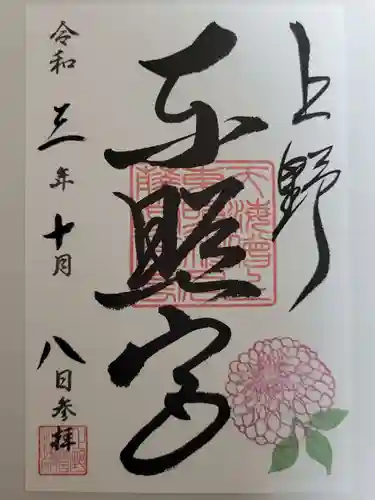 上野
東照宮
令和三年十月八日参拝